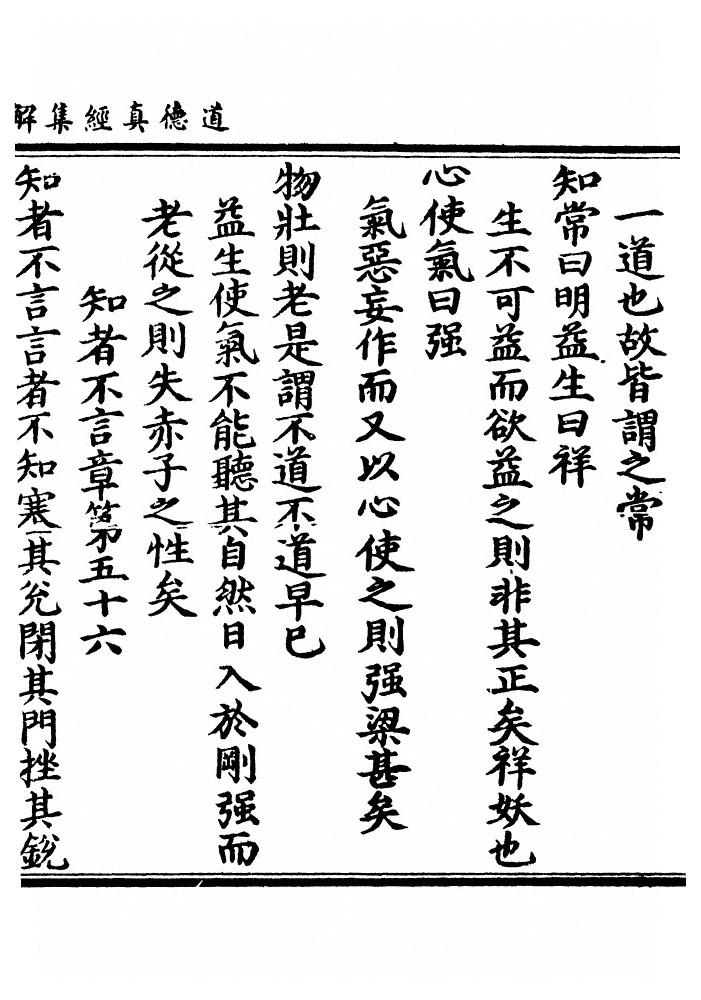 道德真經集解
一道也故皆謂之常
知常曰明益生曰祥
生不可益而欲益之則非其正矣祥妖也
心使氣曰强
氣惡妄作而又以心使之則强梁甚矣
物壯則老是謂不道不道早已
益生使氣不能聽其自然日入於剛强而
老從之則失赤子之性矣
知者不言章第五十六
知者不言言者不知塞其兊閉其門挫其銳